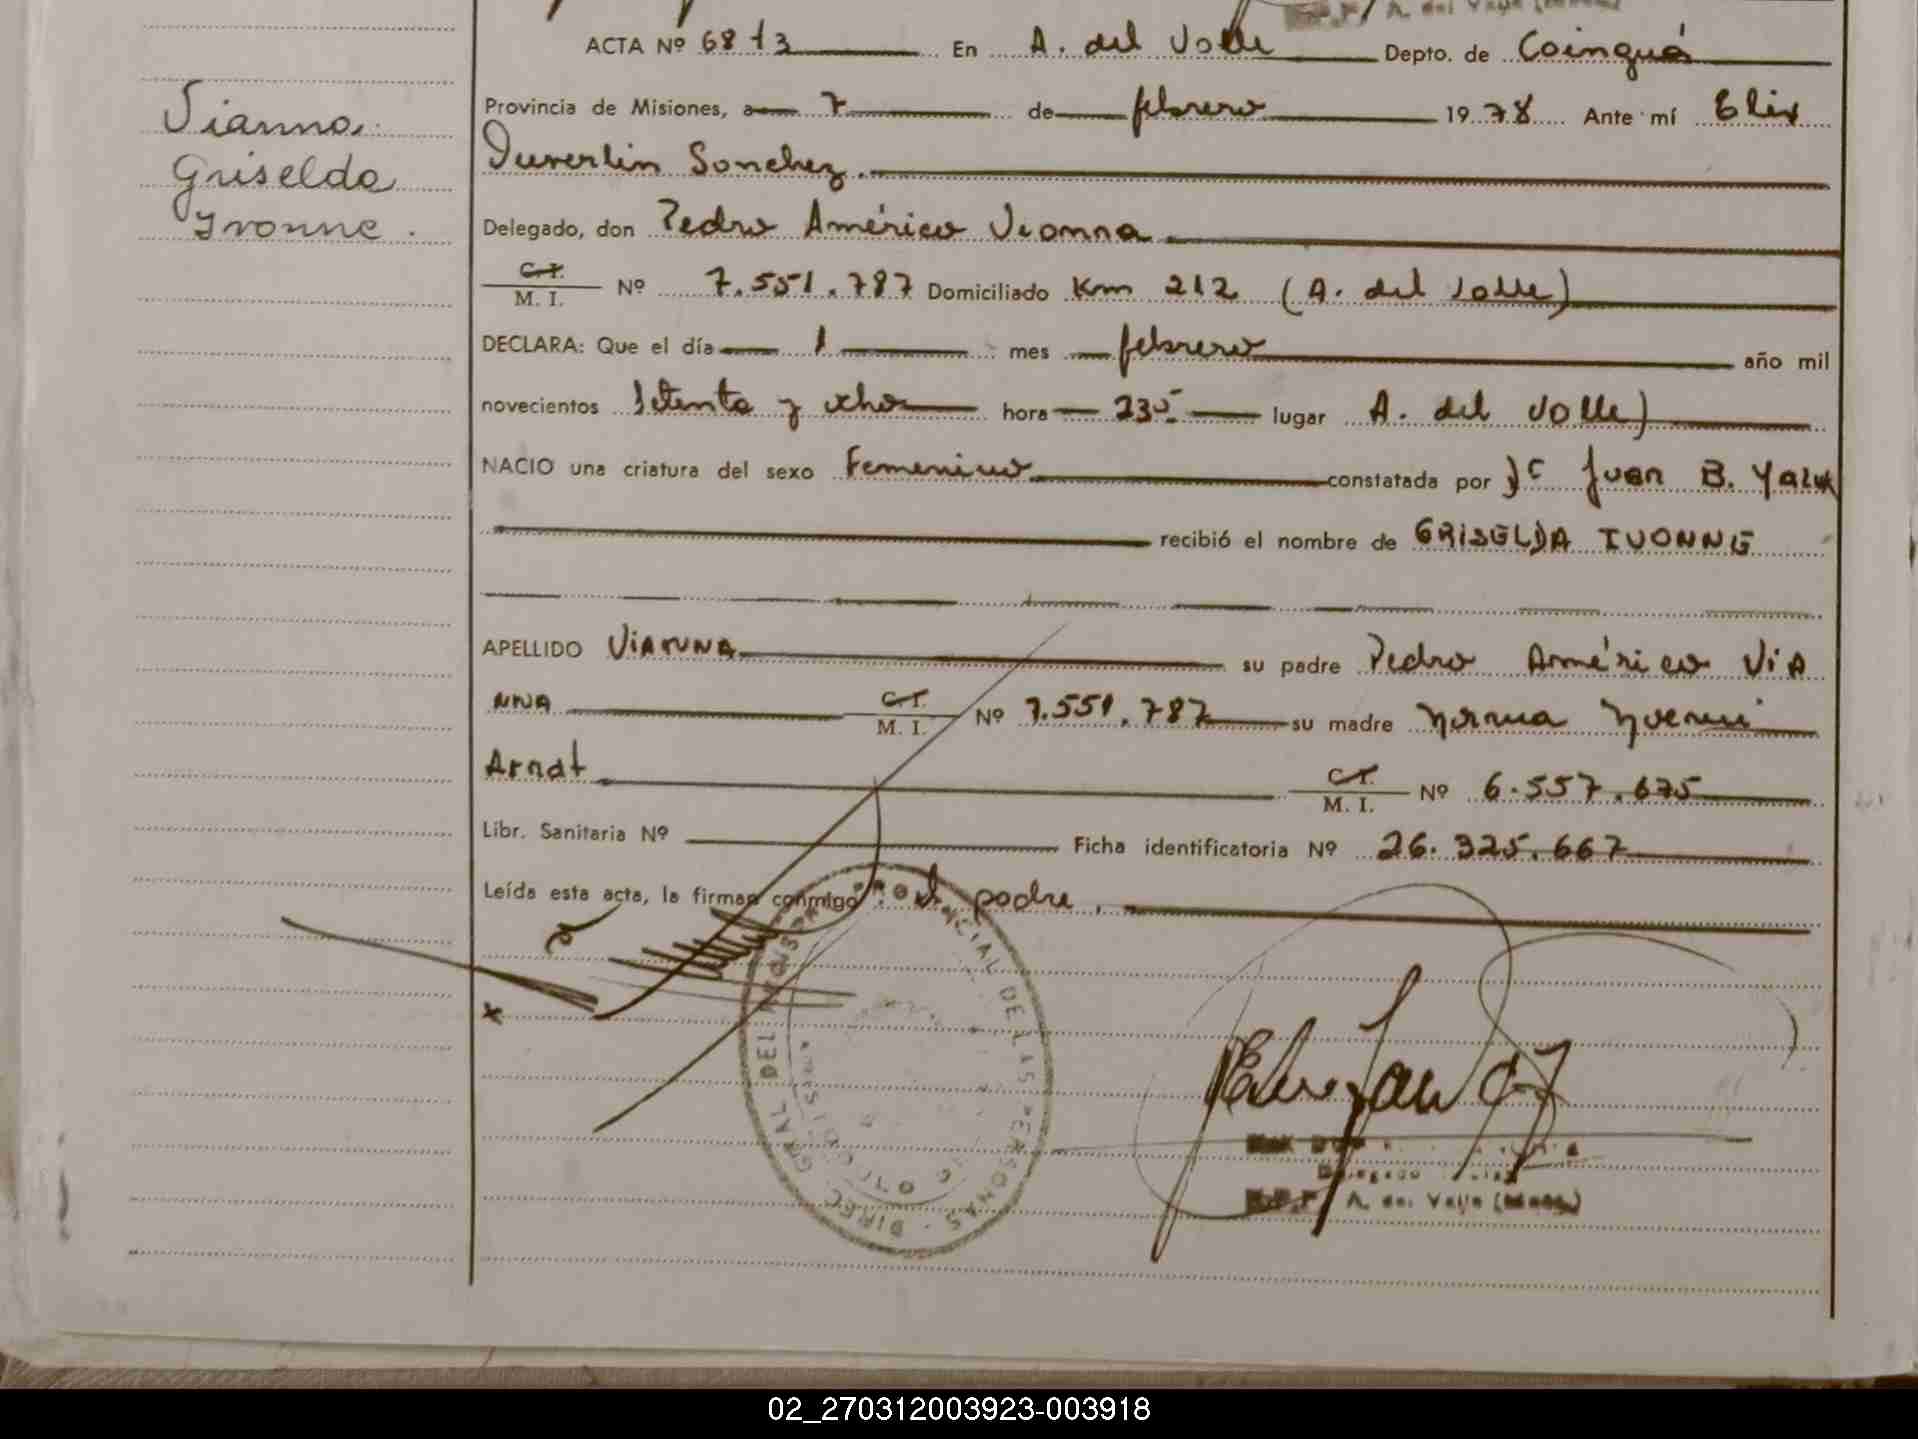 A. del Valle (Misiones)
ACTA Nº 6813 En A. del Valle Depto. de Cainguá
Vianna
Griselda
Yvonne.
Provincia de Misiones, a 7 de febrero 1978 Ante mí Elix
Duverlin Sanchez.
Delegado, don Pedro Américo Vianna
C.I.
M. I. Nº 7.551.787 Domiciliado Km 212 (A. del Valle)
DECLARA: Que el día 1 mes febrero año mil
novecientos setenta y ocho hora 23⁰⁵ lugar A. del Valle)
NACIO una criatura del sexo Femenino constatada por Juan B.
recibió el nombre de GRISELDA IVONNE
APELLIDO VIANNA su padre Pedro Américo VIA
NNA C.I.
M. I. Nº 7.551.787 su madre Norma Noemi
Arndt C.I.
M. I. Nº 6.557.675
Libr. Sanitaria Nº Ficha identificatoria Nº 26.325.667
Leída esta acta, la firman conmigo: el padre.
DIREC. GRAL DEL REGISTRO PROVINCIAL DE LAS PERSONAS
Delegado
A. del Valle (Mnes.)
02_270312003923-003918